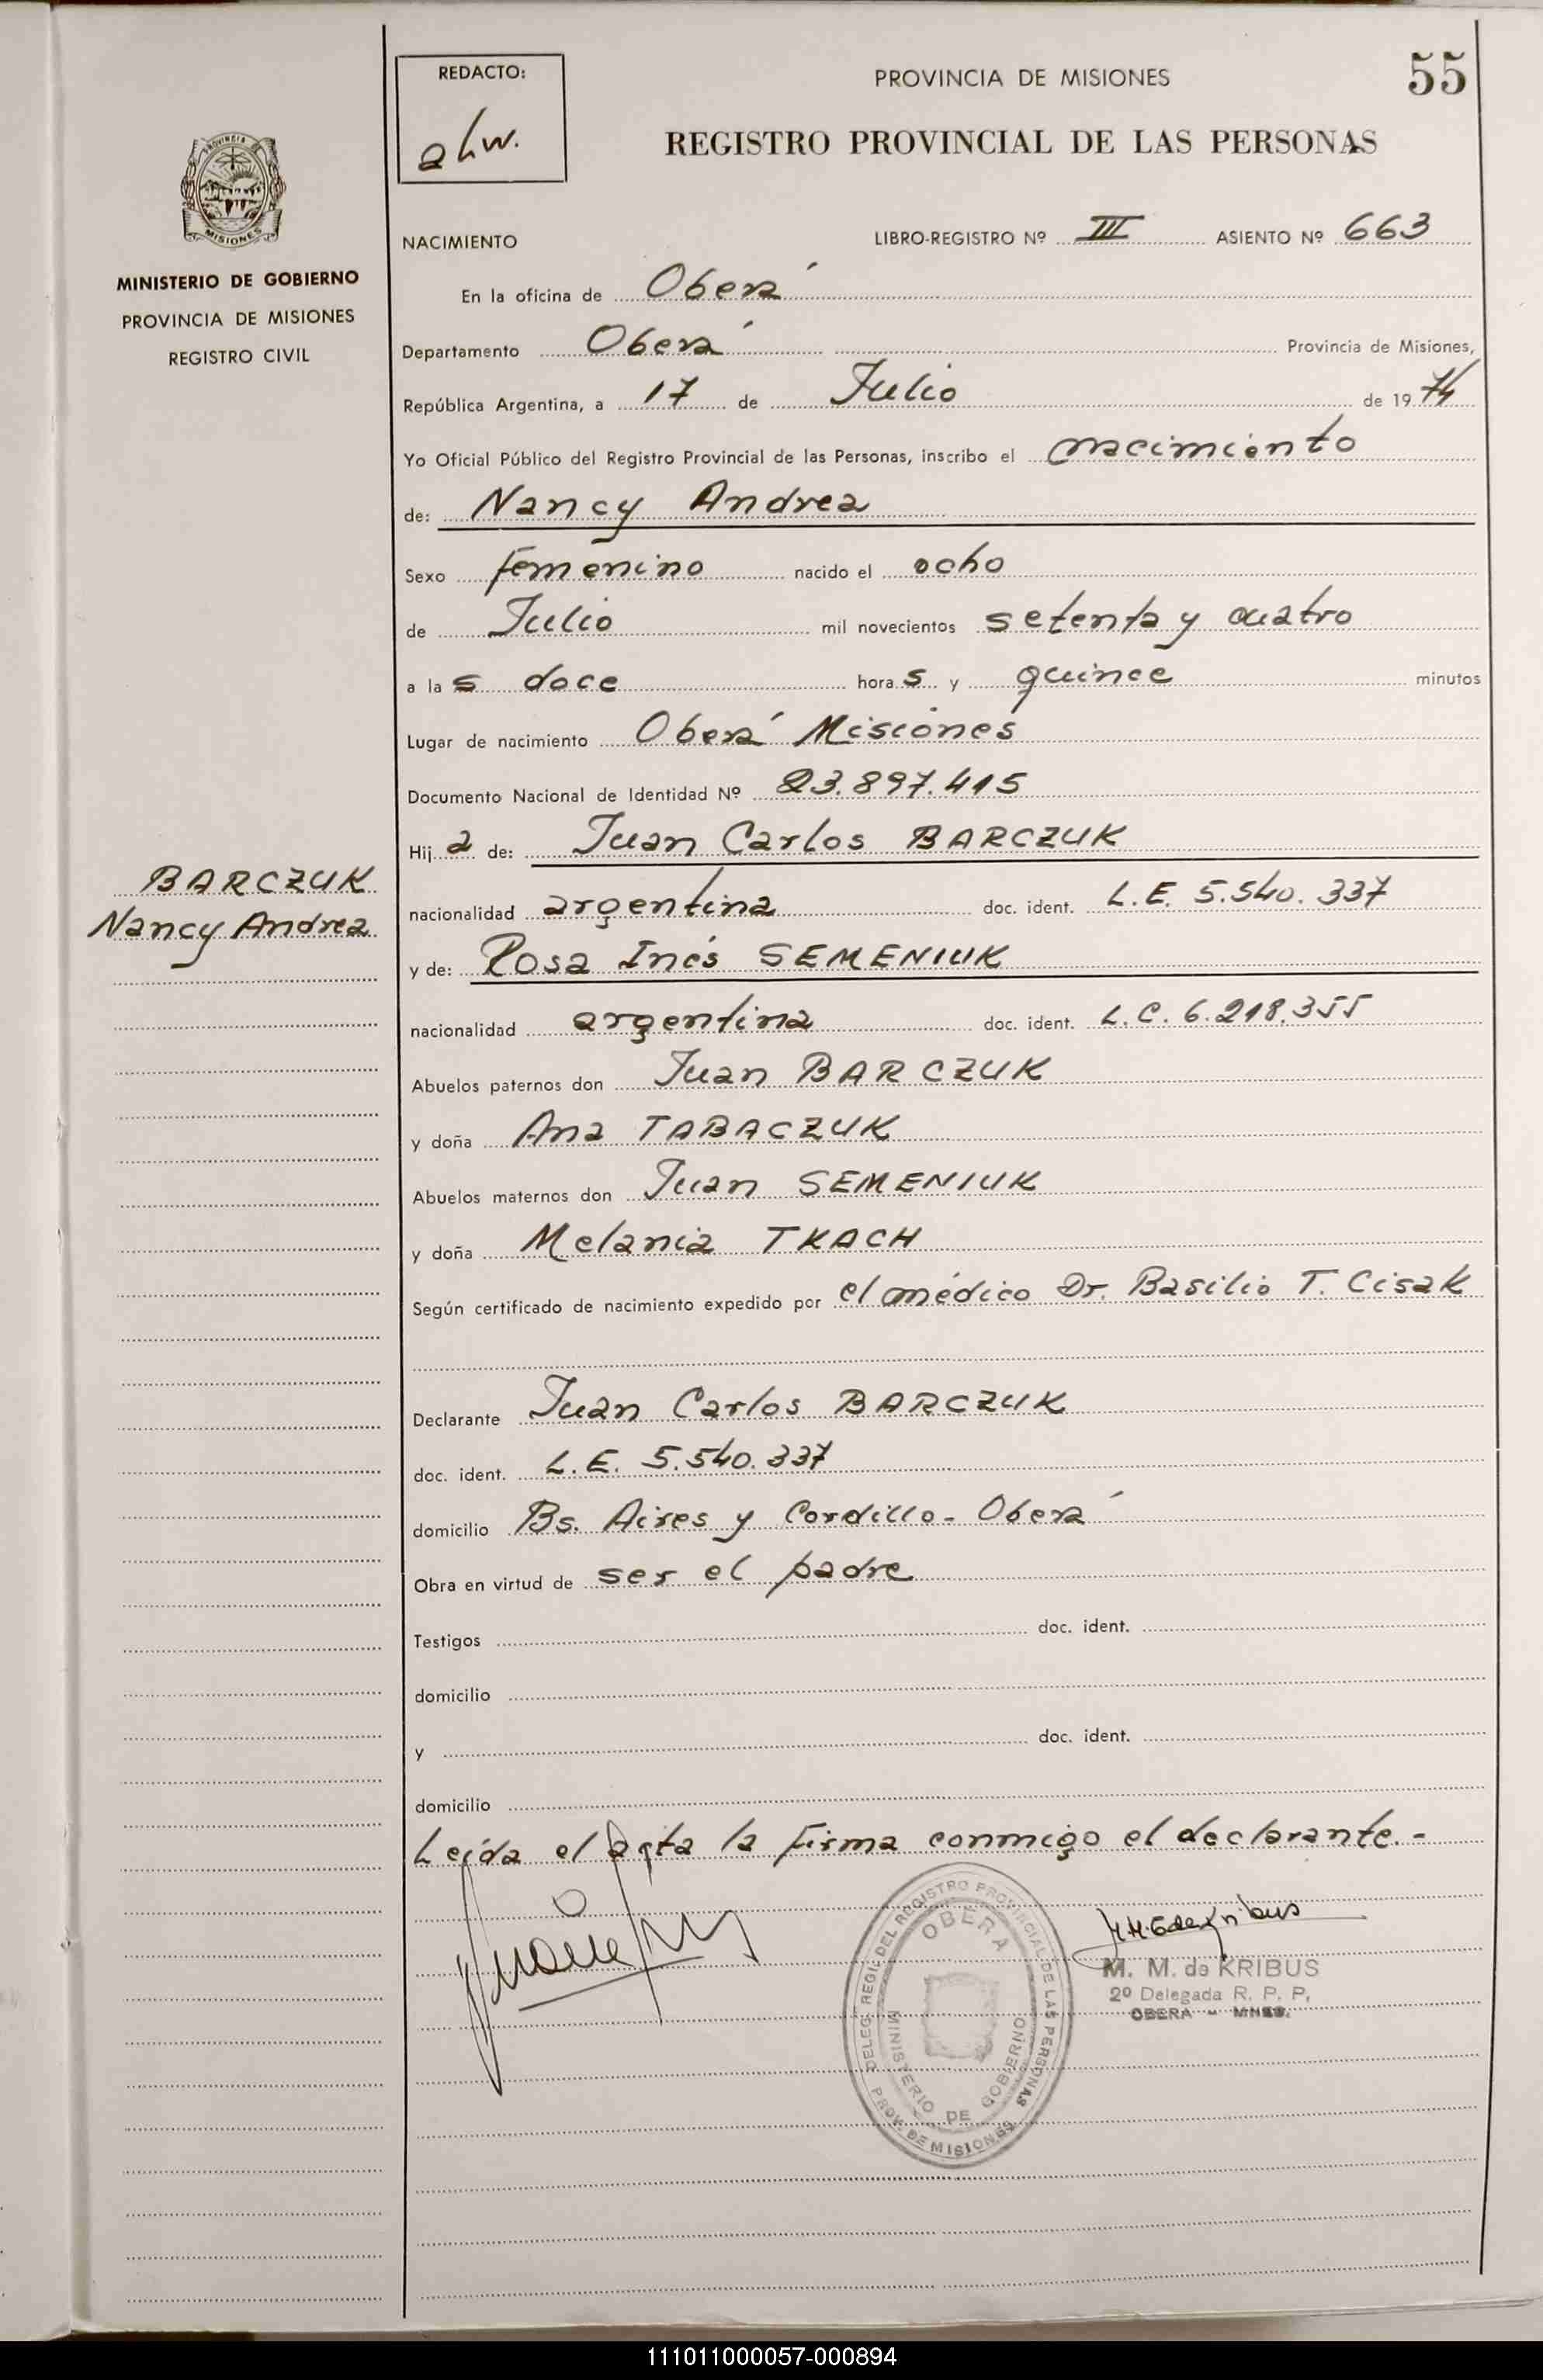 REDACTO:
PROVINCIA DE MISIONES
55
REGISTRO PROVINCIAL DE LAS PERSONAS
PROVINCIA DE
MISIONES
MINISTERIO DE GOBIERNO
PROVINCIA DE MISIONES
REGISTRO CIVIL
NACIMIENTO LIBRO-REGISTRO Nº III ASIENTO Nº 663
En la oficina de Oberá
Departamento Oberá Provincia de Misiones,
República Argentina, a 17 de Julio de 1974
Yo Oficial Público del Registro Provincial de las Personas, inscribo el nacimiento
de: Nancy Andrea
Sexo femenino nacido el ocho
de Julio mil novecientos setenta y cuatro
a las doce horas y quince minutos
Lugar de nacimiento Oberá Misiones
Documento Nacional de Identidad Nº 23.897.415
Hija de: Juan Carlos BARCZUK
BARCZUK
Nancy Andrea
nacionalidad argentina doc. ident. L.E. 5.540.337
y de: Rosa Inés SEMENIUK
nacionalidad argentina doc. ident. L.C. 6.218.355
Abuelos paternos don Juan BARCZUK
y doña Ana TABACZUK
Abuelos maternos don Juan SEMENIUK
y doña Melania TKACH
Según certificado de nacimiento expedido por el médico Dr. Basilio T. Cisak
Declarante Juan Carlos BARCZUK
doc. ident. L.E. 5.540.337
domicilio Bs. Aires y Cordillo - Oberá
Obra en virtud de ser el padre
Testigos doc. ident.
domicilio
y doc. ident.
domicilio
Leída el Acta la firma conmigo el declarante.-
DELEG. REGIL. DEL REGISTRO PROVINCIAL DE LAS PERSONAS
OBERA
MINISTERIO DE GOBIERNO
PROV. DE MISIONES
M. M. de KRIBUS
2º Delegada R. P. P,
OBERA - MNES.
111011000057-000894